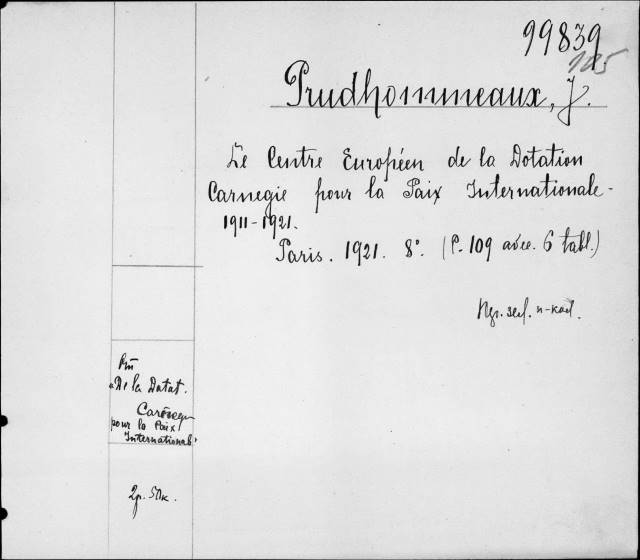 99839
105
Prudhommeaux, J.
Le Centre Européen de la Dotation
Carnegie pour la Paix Internationale -
1911-1921.
Paris. 1921. 8°. (P. 109 avec. 6 tabl.)
"De la Dotat.
pour la Paix
International"
2p. 50к.